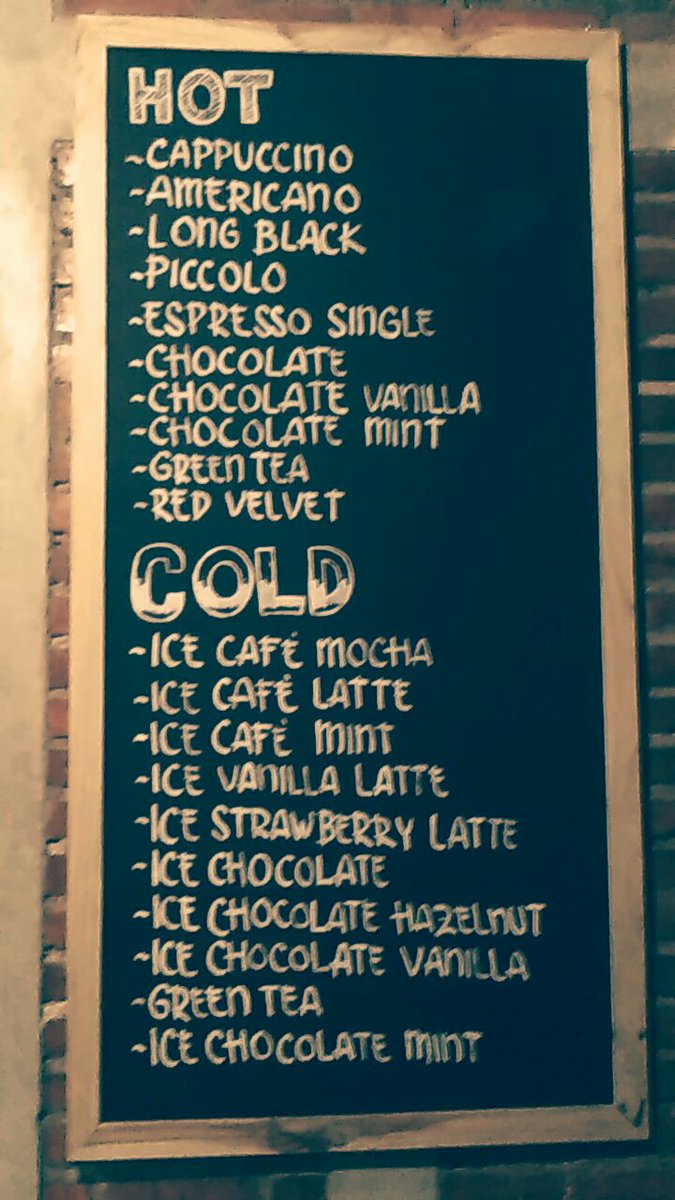 HOT
~CAPPUCCINO
~AMERICANO
~LONG BLACK
~PICCOLO
~ESPRESSO SINGLE
~CHOCOLATE
~CHOCOLATE VANILLA
~CHOCOLATE MINT
~GREEN TEA
~RED VELVET
COLD
~ICE CAFÉ MOCHA
~ICE CAFÉ LATTE
~ICE CAFÉ MINT
~ICE VANILLA LATTE
~ICE STRAWBERRY LATTE
~ICE CHOCOLATE
~ICE CHOCOLATE HAZELNUT
~ICE CHOCOLATE VANILLA
~GREEN TEA
~ICE CHOCOLATE MINT